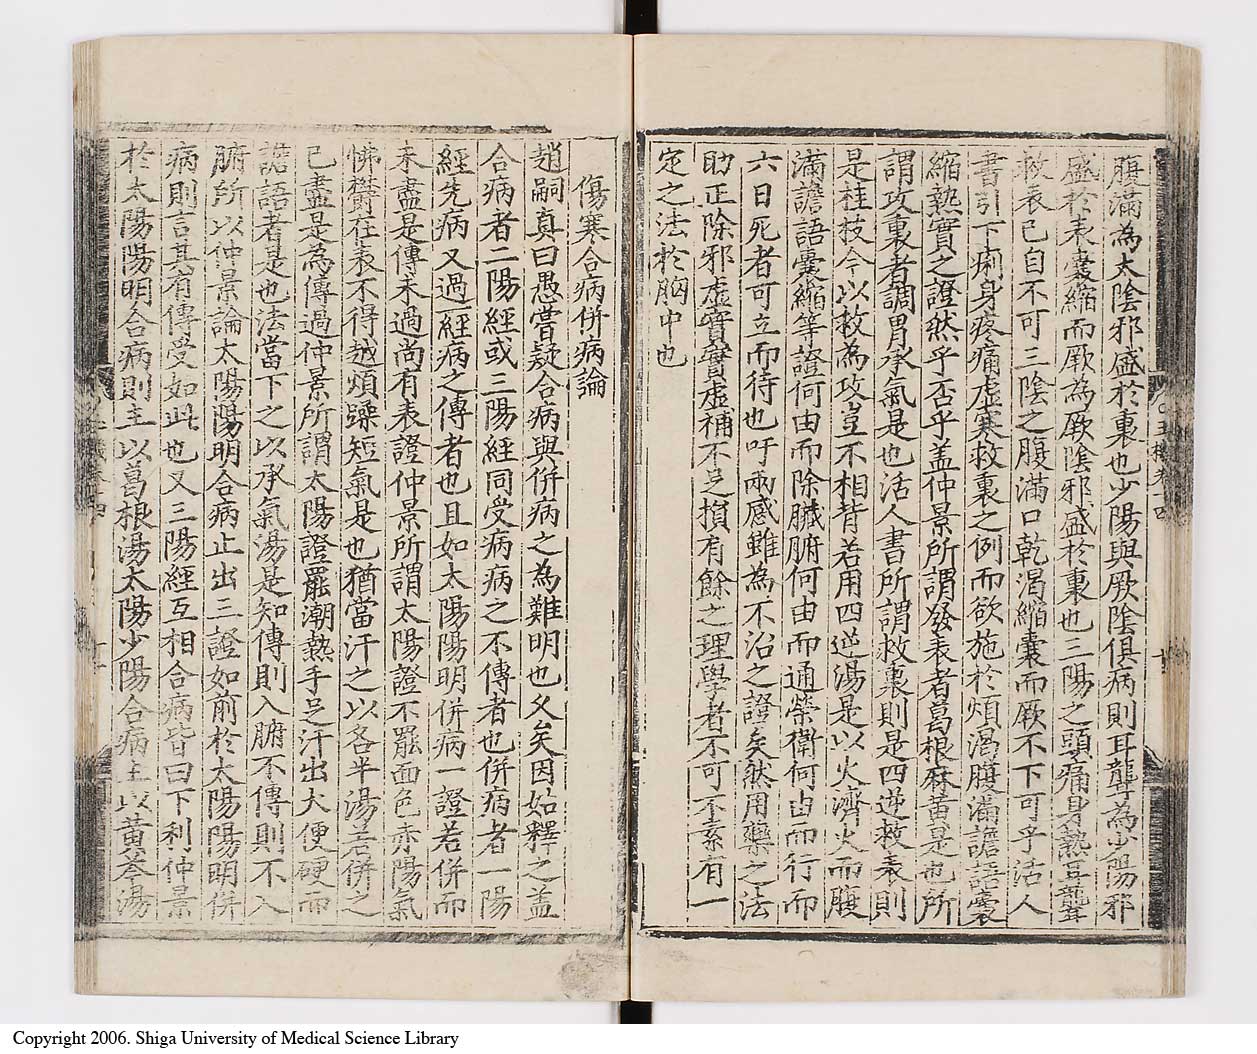 腹滿為太陰邪盛於裏也少陽與厥陰俱病則耳聾為少陽邪
盛於表囊縮而厥為厥陰邪盛於裏也三陽之頭痛身熱耳聾
救表已自不可三陰之腹滿口乾渴縮囊而厥不下可乎活人
書引下痢身疼痛虛寒救裏之例而欲施於煩渴腹滿譫語囊
縮熱實之證然乎否乎盖仲景所謂發表者葛根麻黃是也所
謂攻裏者調胃承氣是也活人書所謂救裏則是四逆救表則
是桂枝今以救為攻豈不相背若用四逆湯是以火濟火而腹
滿譫語囊縮等證何由而除臟腑何由而通榮衛何由而行而
六日死者可立而待也吁兩感雖為不治之證矣然用藥之法
助正除邪虛實實虛補不足損有餘之理學者不可不素有一
定之法於胸中也
傷寒合病併病論
趙嗣真曰愚嘗疑合病與併病之為難明也久矣因姑釋之盖
合病者二陽經或三陽經同受病病之不傳者也併病者一陽
經先病又過一經病之傳者也且如太陽陽明併病一證若併而
未盡是傳未過尚有表證仲景所謂太陽證不罷面色赤陽氣
怫欝在表不得越煩躁短氣是也猶當汗之以各半湯若併之
已盡是為傳過仲景所謂太陽證罷潮熱手足汗出大便硬而
譫語者是也法當下之以承氣湯是知傳則入腑不傳則不入
腑所以仲景論太陽陽明合病止出三證如前於太陽陽明併
病則言其有傳受如此也又三陽經互相合病皆曰下利仲景
於太陽陽明合病則主以葛根湯太陽少陽合病主以黃芩湯
Copyright 2006. Shiga University of Medical Science Library